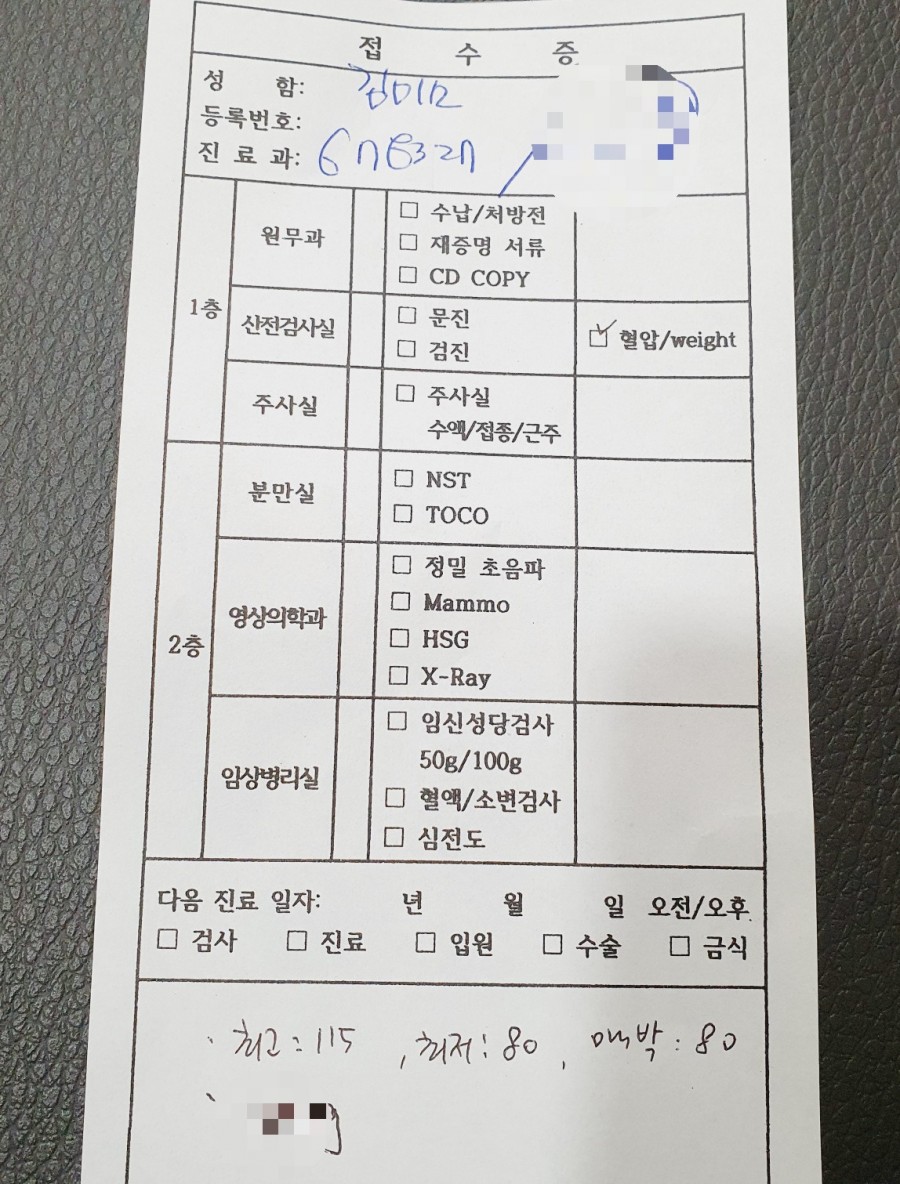 접 수 증
성 함: 김미고
등록번호:
진 료 과: 6개월32개
1층
원무과
□ 수납/처방전
□ 재증명 서류
□ CD COPY
산전검사실
□ 문진
□ 검진
☑ 혈압/weight
주사실
□ 주사실
수액/접종/근주
2층
분만실
□ NST
□ TOCO
영상의학과
□ 정밀 초음파
□ Mammo
□ HSG
□ X-Ray
임상병리실
□ 임신성당검사
50g/100g
□ 혈액/소변검사
□ 심전도
다음 진료 일자: 년 월 일 오전/오후
□ 검사 □ 진료 □ 입원 □ 수술 □ 금식
· 최고: 115 , 최저: 80 , 맥박: 80